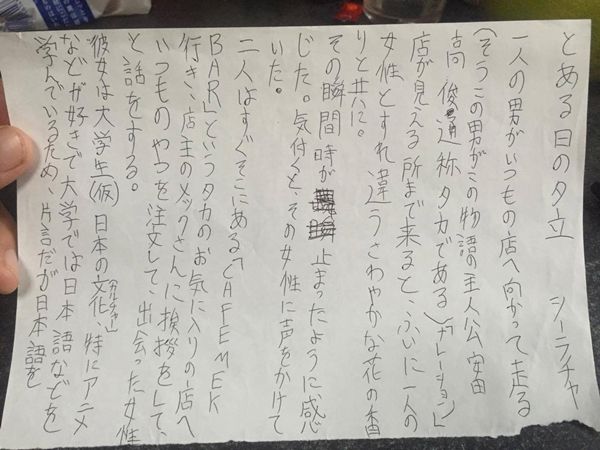 とある日の夕立 シーラチャ
一人の男がいつもの店へ向かって走る
(そうこの男がこの物語の主人公 安田
高俊 通称 タカである)「ナレーション」
店が見える所まで来ると、ふいに一人の
女性とすれ違うさわやかな花の香
りと共に。
その瞬間時が止まったように感
じた。気付くと、その女性に声をかけて
いた。
二人はすぐそこにある「CAFE MEK
BAR」というタカのお気に入りの店へ
行き、店主のメックさんに挨拶をして、
いつものやつを注文して、出会った女性
と話をする。
彼女は大学生(仮)日本の文化(カルチャー)、特にアニメ
などが好きで大学では日本語などを
学んでいるため、片言だが日本語を